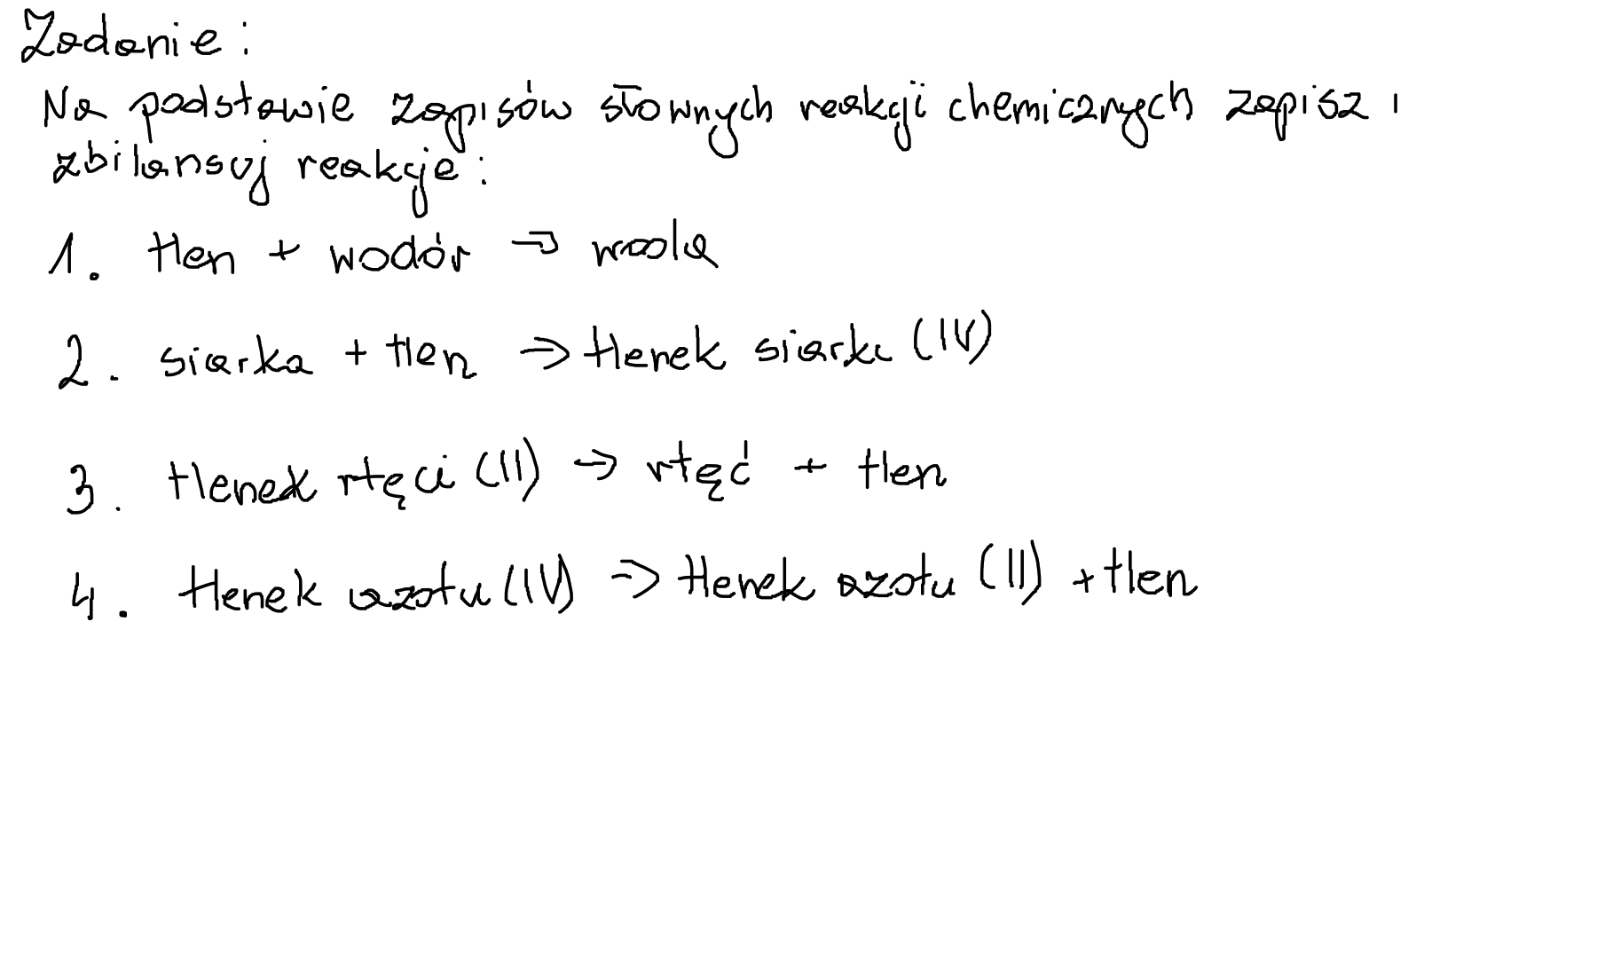 Zadanie:
Na podstawie zapisów słownych reakcji chemicznych zapisz i
zbilansuj reakcje:
1. tlen + wodór → woda
2. siarka + tlen → tlenek siarki (IV)
3. tlenek rtęci (II) → rtęć + tlen
4. tlenek azotu (IV) → tlenek azotu (II) + tlen